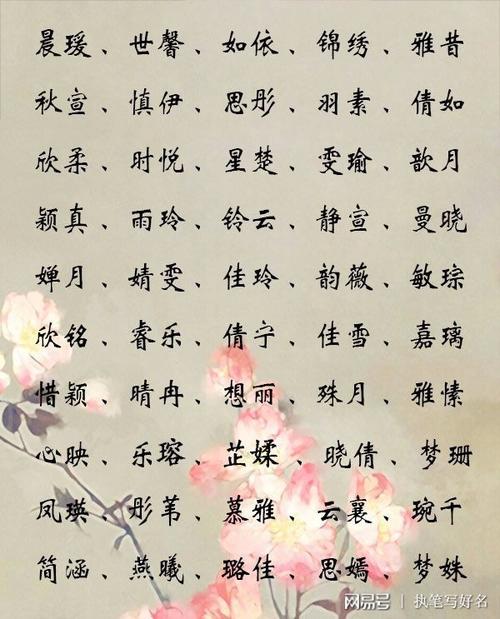 晨瑗、世馨、如依、锦绣、雅昔
秋宣、慎伊、思彤、羽素、倩如
欣柔、时悦、星楚、雯瑜、歆月
颖真、雨玲、铃云、静宣、曼晓
婵月、婧雯、佳玲、韵薇、敏琮
欣铭、睿乐、倩宁、佳雪、嘉璃
惜颖、晴冉、想丽、殊月、雅愫
心映、乐瑢、芷媃、晓倩、梦珊
凤瑛、彤苇、慕雅、云襄、琬千
简涵、燕曦、璐佳、思嫣、梦姝
网易号 | 执笔写好名